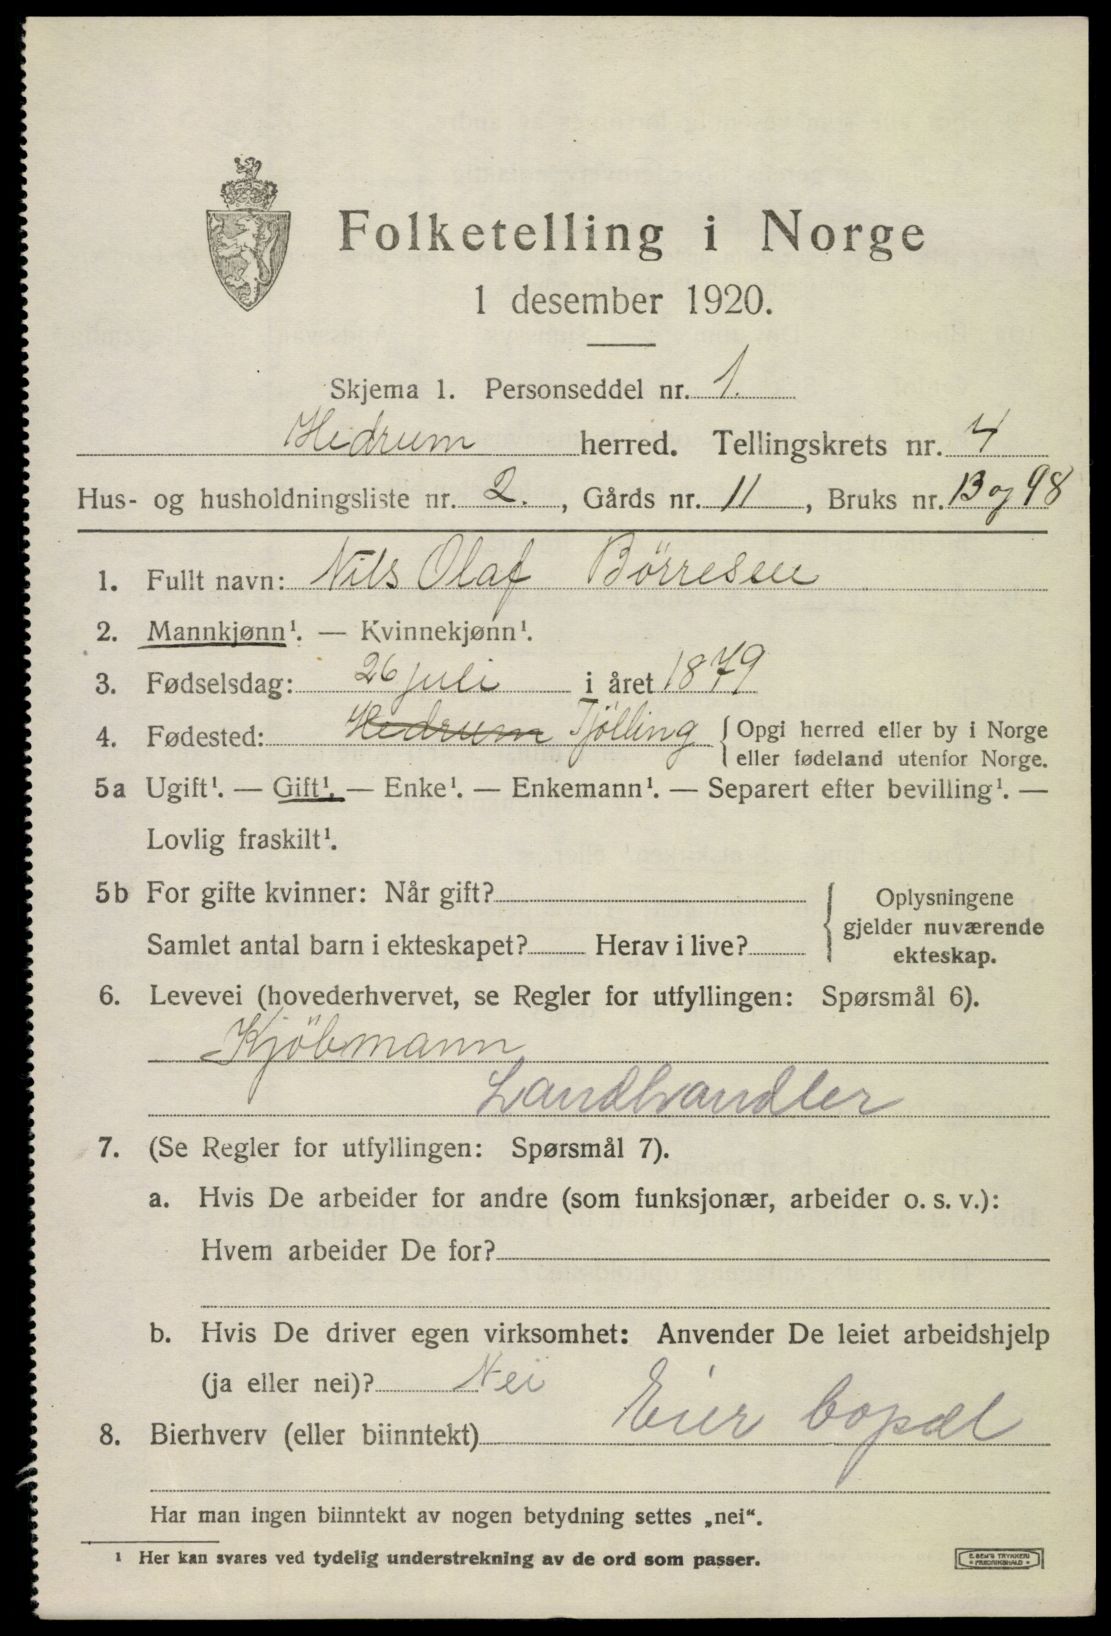 Folketelling i Norge
1 desember 1920.
Skjema 1. Personseddel nr. 1.
Hedrum herred. Tellingskrets nr. 4
Hus- og husholdningsliste nr. 2., Gårds nr. 11, Bruks nr. 13 og 98
1. Fullt navn: Nils Olaf Börresen
2. Mannkjønn¹. — Kvinnekjønn¹.
3. Fødselsdag: 26 juli i året 1879
4. Fødested: Hedrum Tjölling { Opgi herred eller by i Norge
eller fødeland utenfor Norge.
5a Ugift¹. — Gift¹. — Enke¹. — Enkemann¹. — Separert efter bevilling¹. —
Lovlig fraskilt¹.
5b For gifte kvinner: Når gift?
Samlet antal barn i ekteskapet? Herav i live?
{ Oplysningene
gjelder nuværende
ekteskap.
6. Levevei (hovederhvervet, se Regler for utfyllingen: Spørsmål 6).
Kjöbmann
Landhandler
7. (Se Regler for utfyllingen: Spørsmål 7).
a. Hvis De arbeider for andre (som funksjonær, arbeider o. s. v.):
Hvem arbeider De for?
b. Hvis De driver egen virksomhet: Anvender De leiet arbeidshjelp
(ja eller nei)? Nei
8. Bierhverv (eller biinntekt) Eier bopæl
Har man ingen biinntekt av nogen betydning settes „nei“.
¹ Her kan svares ved tydelig understrekning av de ord som passer.
E. SEM'S TRYKKERI
• FREDRIKSHALD •